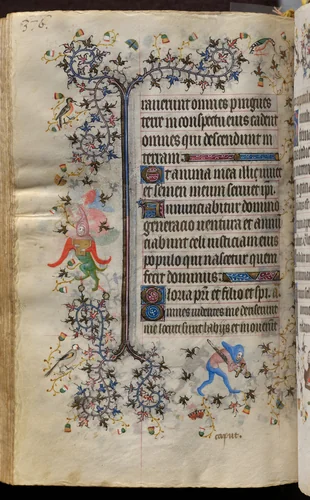 376.
raverunt omnes pingues
terre in conspectu eius cadent
omnes qui descendunt in
terram.
Et anima mea illi vivet
et semen meum serviet ipi.
Annunciabitur domino
generacio ventura et annun
ciabunt celi iusticiam eius
populo qui nascetur quem
fecit dominus
Gloria pri et filio et spi. s
Omnes videntes me deriserunt
me locuti sunt labijs et moverunt
caput.